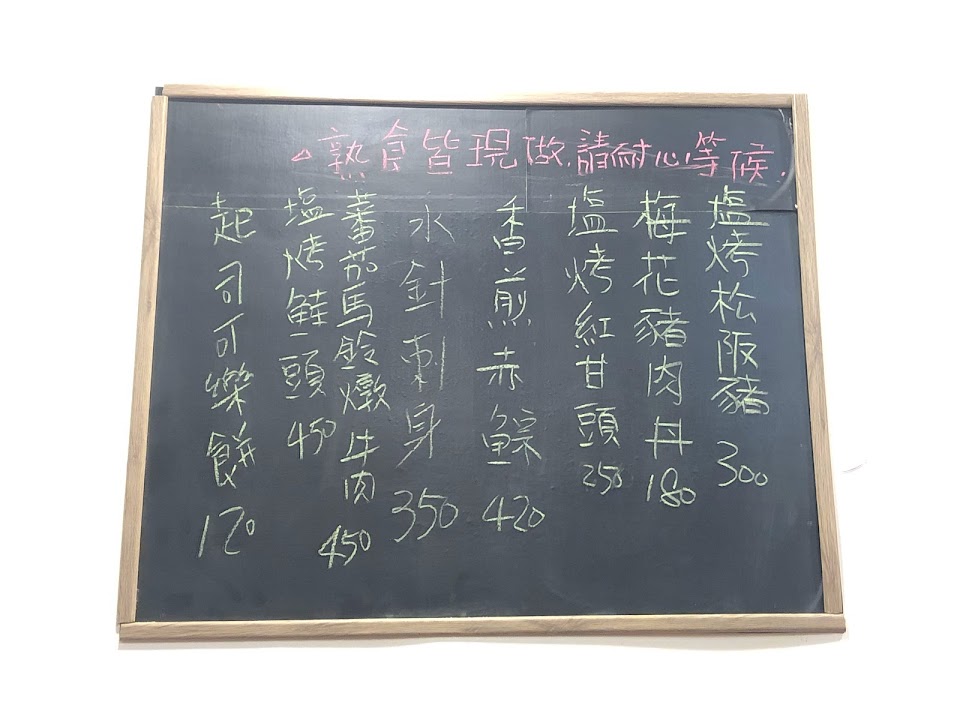 △熟食皆現做.請耐心等候.
塩烤松阪豬 300
梅花豬肉丼 180
塩烤紅甘頭 250
香煎赤鯮 420
水針刺身 350
蕃茄馬鈴燉牛肉 450
塩烤鮭頭 450
起司可樂餅 120